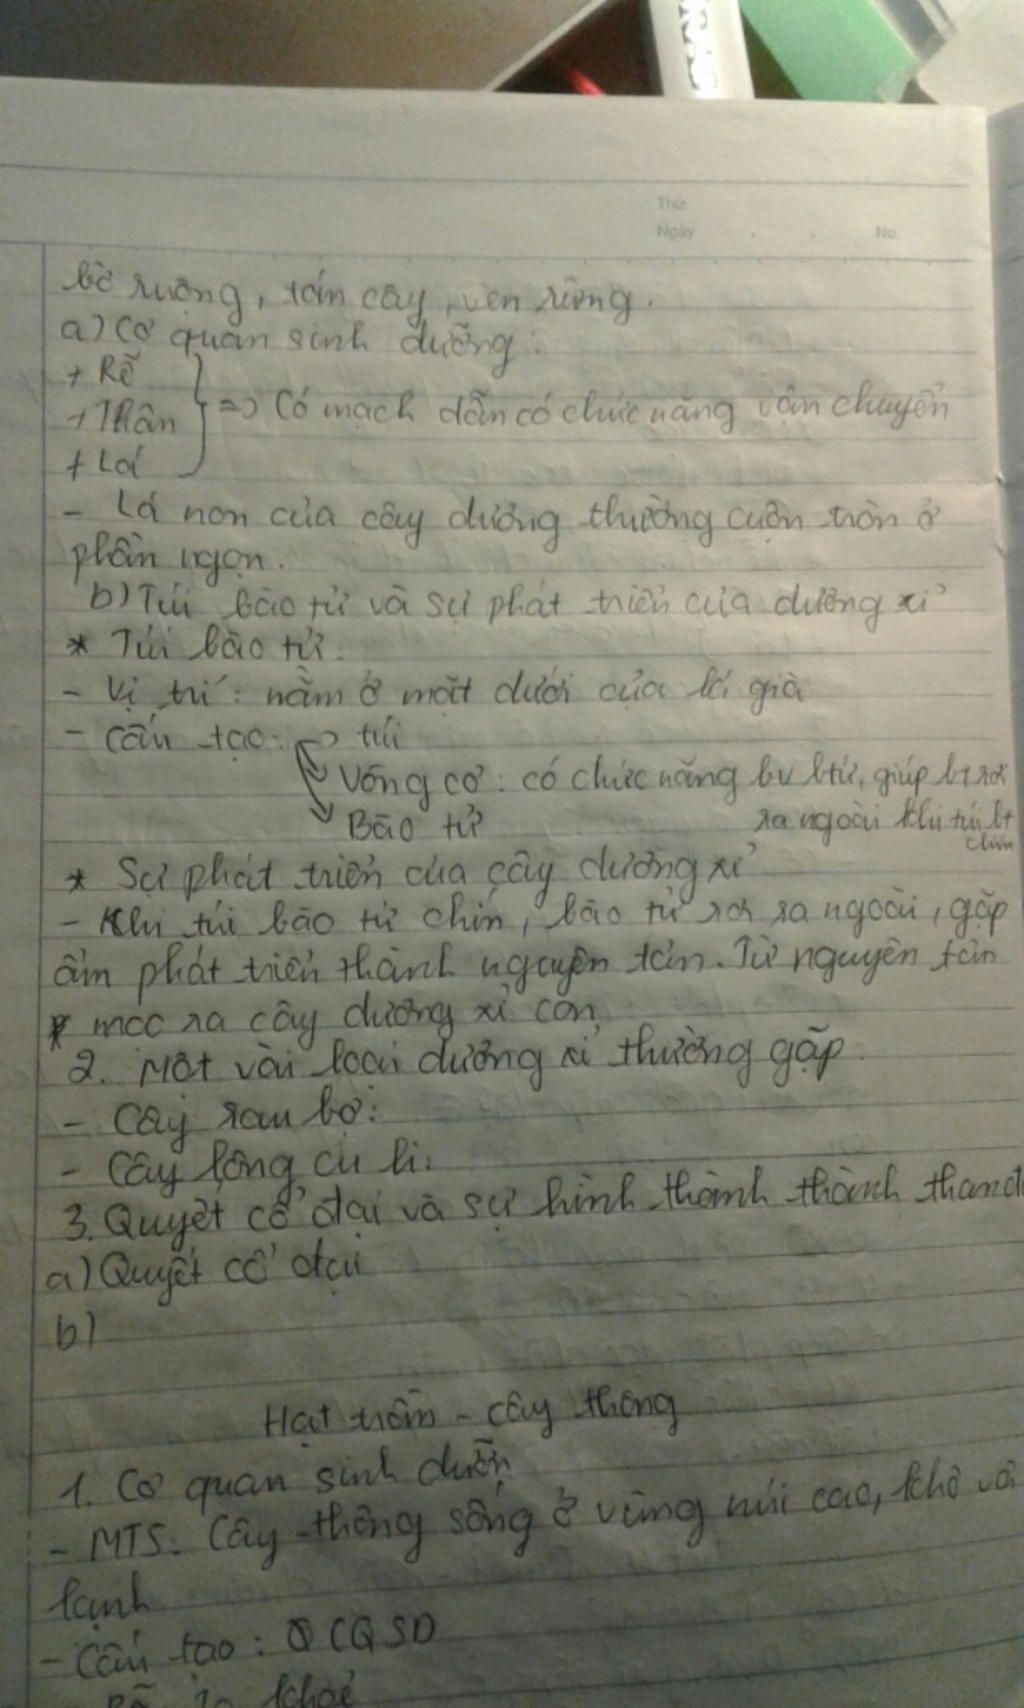 Thứ
Ngày . . No.
bờ ruộng, tán cây, ven rừng.
a) Cơ quan sinh dưỡng:
+ Rễ
+ Thân
+ Lá
} => Có mạch dẫn có chức năng vận chuyển
- Lá non của cây dương thường cuộn tròn ở
phần ngọn.
b) Túi bào tử và sự phát triển của dương xỉ
* Túi bào tử:
- Vị trí: nằm ở mặt dưới của lá già
- Cấu tạo: -> túi
Vòng cơ: có chức năng bv btử, giúp bt rơi
ra ngoài khi túi bt
chín
Bào tử
* Sự phát triển của cây dương xỉ
- Khi túi bào tử chín, bào tử rơi ra ngoài, gặp
ẩm phát triển thành nguyên tản. Từ nguyên tản
mọc ra cây dương xỉ con
2. Một vài loại dương xỉ thường gặp
- Cây rau bợ:
- Cây lông cu li:
3. Quyết cổ đại và sự hình thành thành than đ
a) Quyết cổ đại
b)
Hạt trần - cây thông
1. Cơ quan sinh dưỡn
- MTS: Cây thông sống ở vùng núi cao, khô và
lạnh
- Cấu tạo: CQSD
Rễ to khoẻ